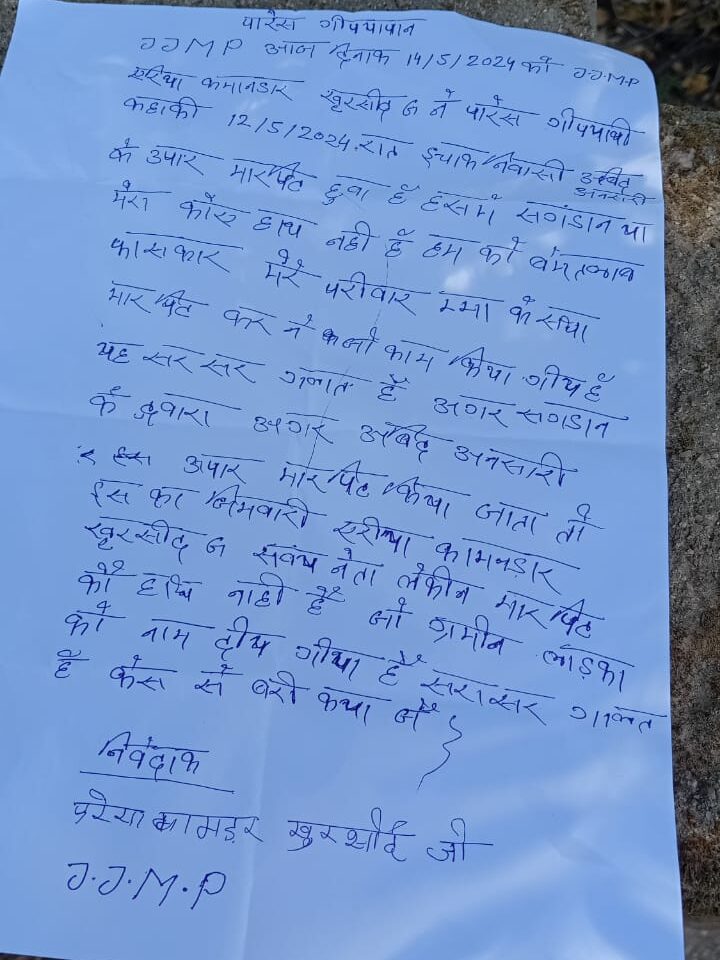 पारेस गीपयापान
JJMP आज दिनाक 14/5/2024 को JJMP
एरिया कमानडार खुरसीद ज ने पारेस गीपयापी
कहाकी 12/5/2024.रात इचाक निवासी अबिद अनसारी
के उपार मारपिट हुवा हैं इसमें सगंठान या
मेरा कोए हाथ नही हैं हम को
फासकार मेरे परीवार ममा के सथा
मारपिट कर ने कजो काम किया गीय हैं
यह सर सर गलात हैं अगर सगठान
के द्वारा अगर अबिद अनसारी
इस उपार मारपिट किया जाता तो
इस का जिमवारी एरीया कामनडार
खुरसीद ज सवंय नेता लेकीन मारपिट
कौ हाथ नाही हैं जो ग्रमीन लाड़का
को नाम दीय गीया हैं सरासर गालत
हैं केस से बरी कया जें
निवेदाक
एरेया कामडर खुरशीद जी
J.J.M.P